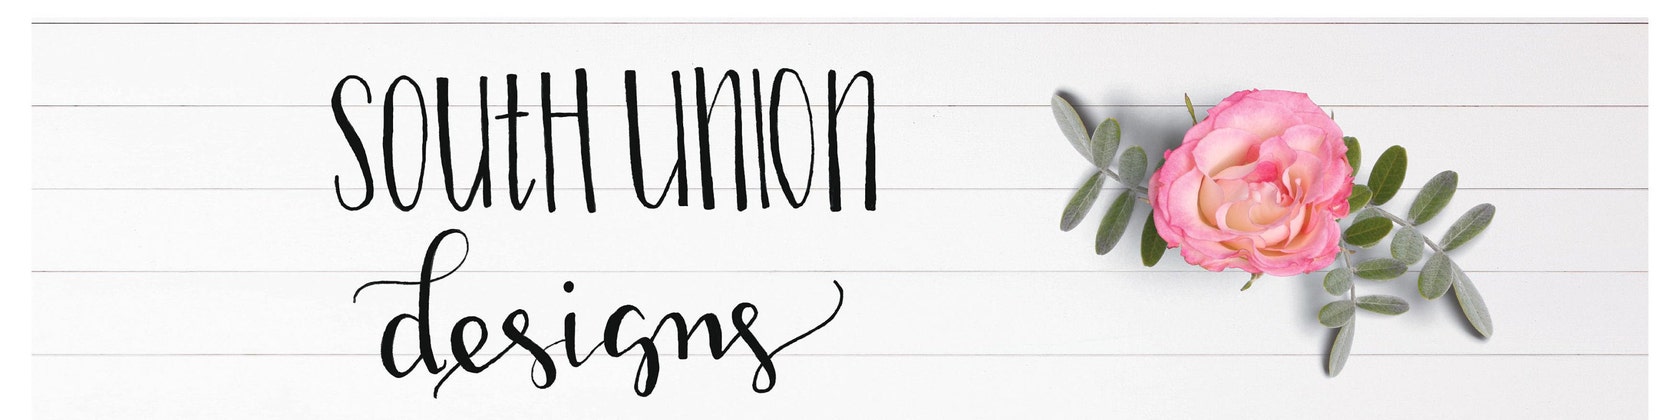 SOUTH UNION
designs